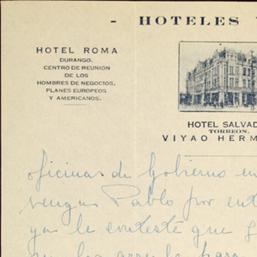 - HOTELES
HOTEL ROMA
DURANGO.
CENTRO DE REUNIÓN
DE LOS
HOMBRES DE NEGOCIOS.
PLANES EUROPEOS
Y AMERICANOS.
HOTEL SALVAD
TORREON,
VIYAO HERM
oficinas de Gobierno en
vengas Pablo por ent
le conteste que
para